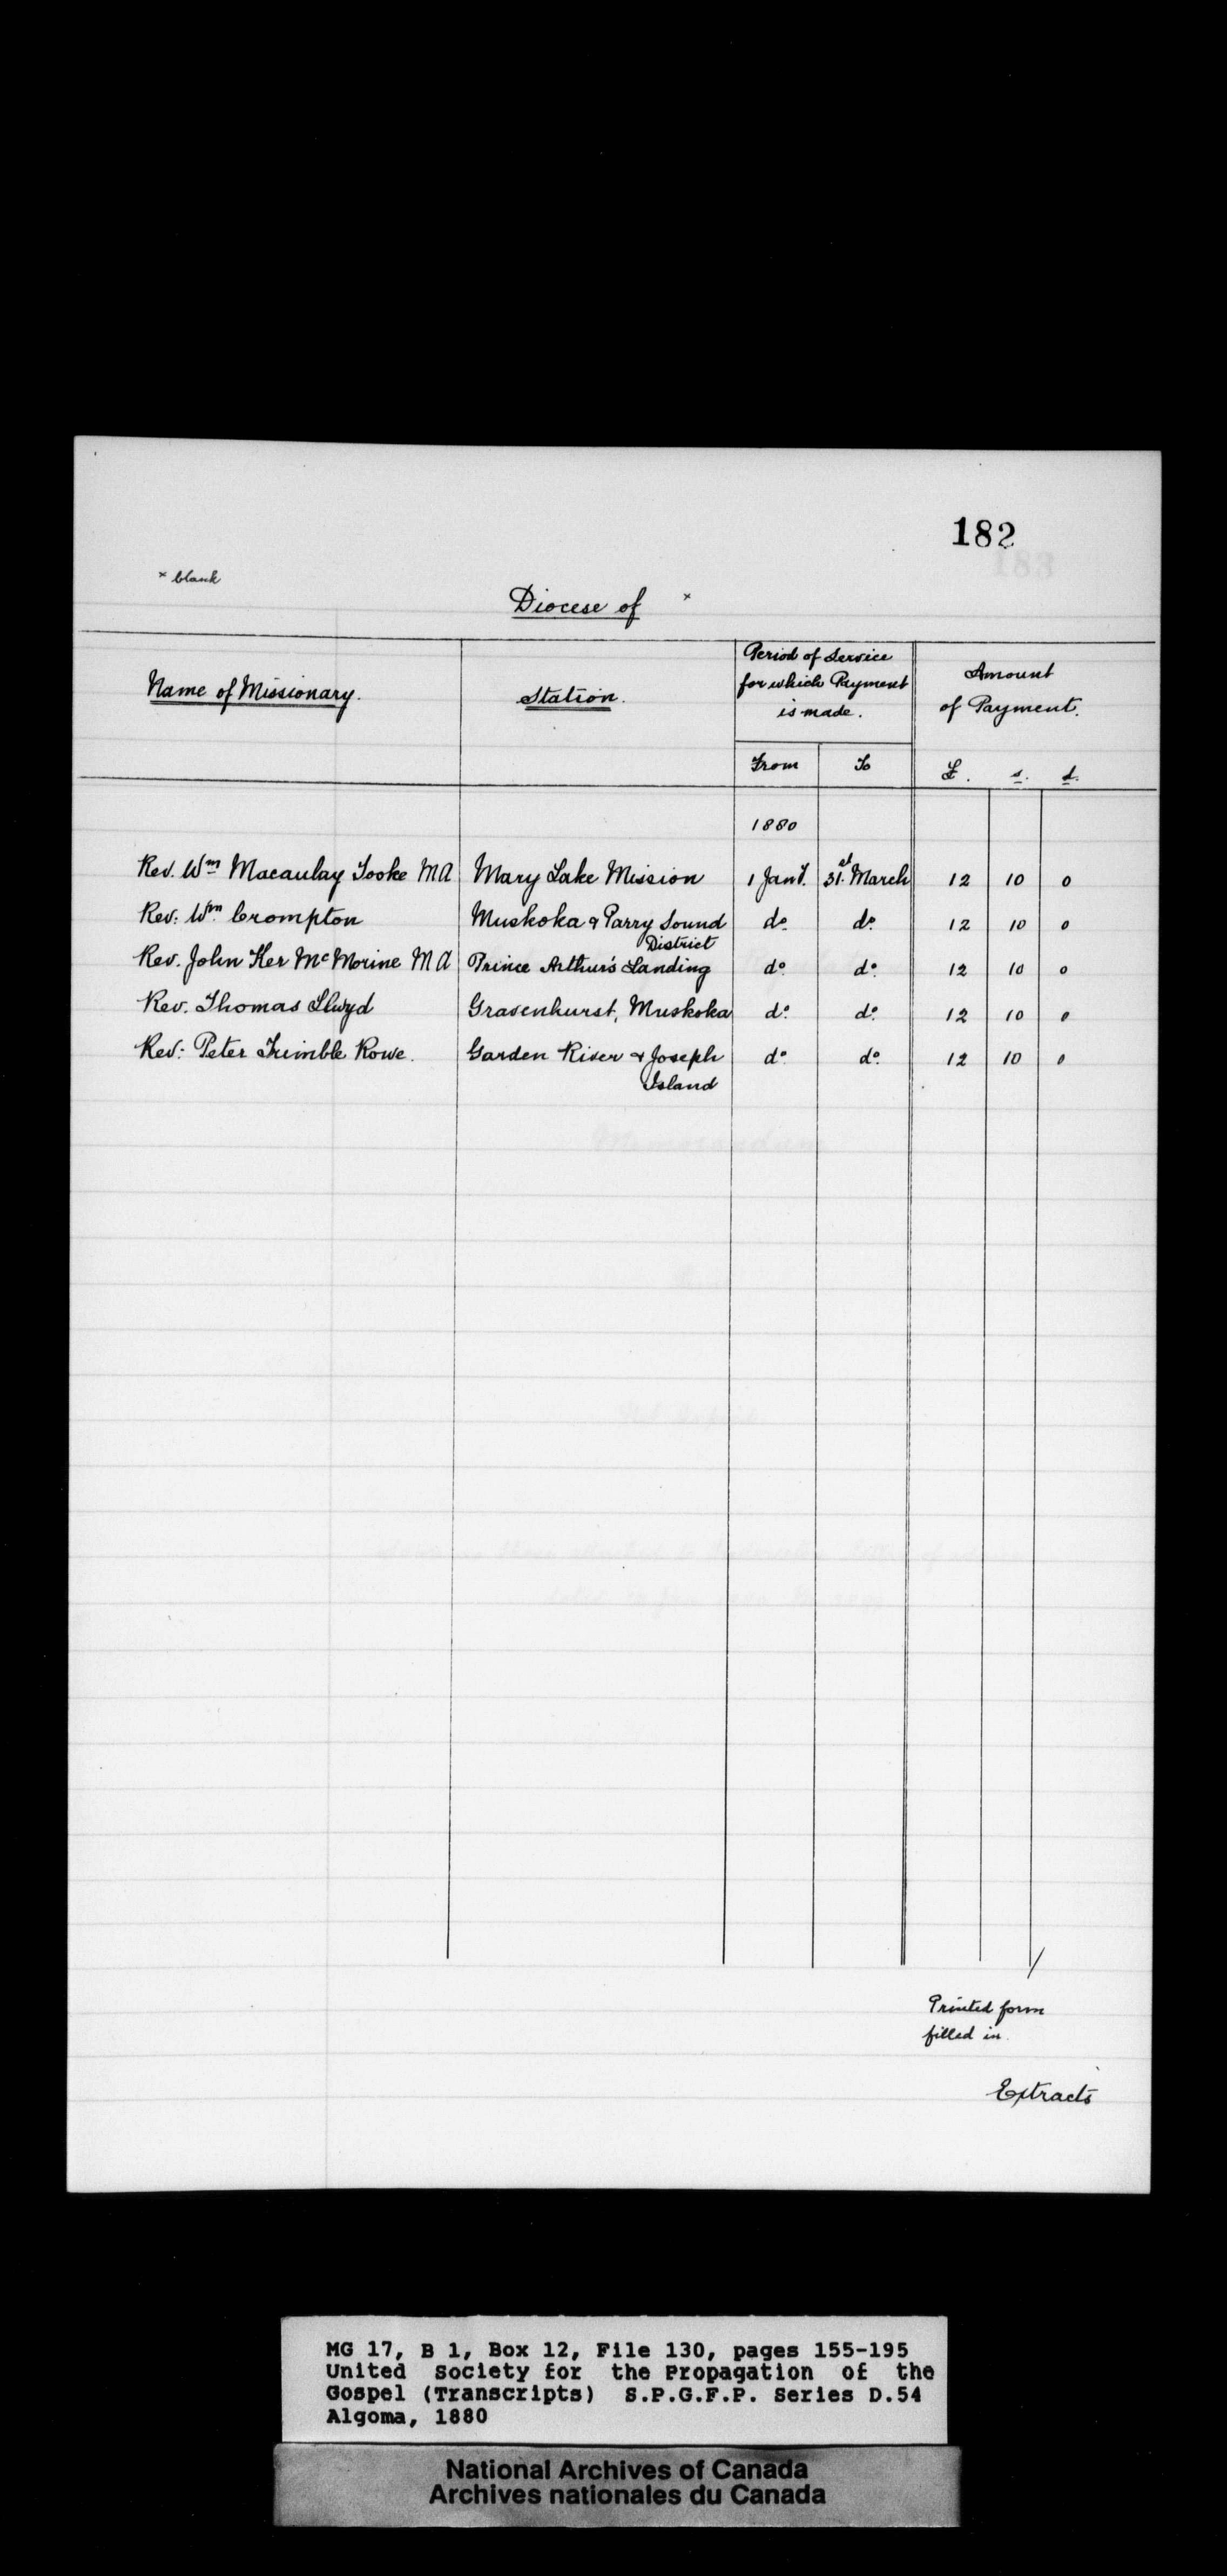 182
× blank
Diocese of ×
Name of Missionary.
Station.
Period of Service
for which Payment
is made.
Amount
of Payment.
From
To
£. s. d.
1880
Rev. Wm Macaulay Tooke MA Mary Lake Mission 1 Jany. 31st March 12 10 0
Rev: Wm Crompton Muskoka & Parry Sound do. do. 12 10 0
District
Rev. John Ker McMorine MA Prince Arthur's Landing do. do. 12 10 0
Rev. Thomas Llwyd Gravenhurst, Muskoka do. do. 12 10 0
Rev: Peter Trimble Rowe. Garden River & Joseph do. do. 12 10 0
Island
Memorandum
Printed form
filled in.
Extracts
MG 17, B 1, Box 12, File 130, pages 155-195
United Society for the Propagation of the
Gospel (Transcripts) S.P.G.F.P. Series D.54
Algoma, 1880
National Archives of Canada
Archives nationales du Canada